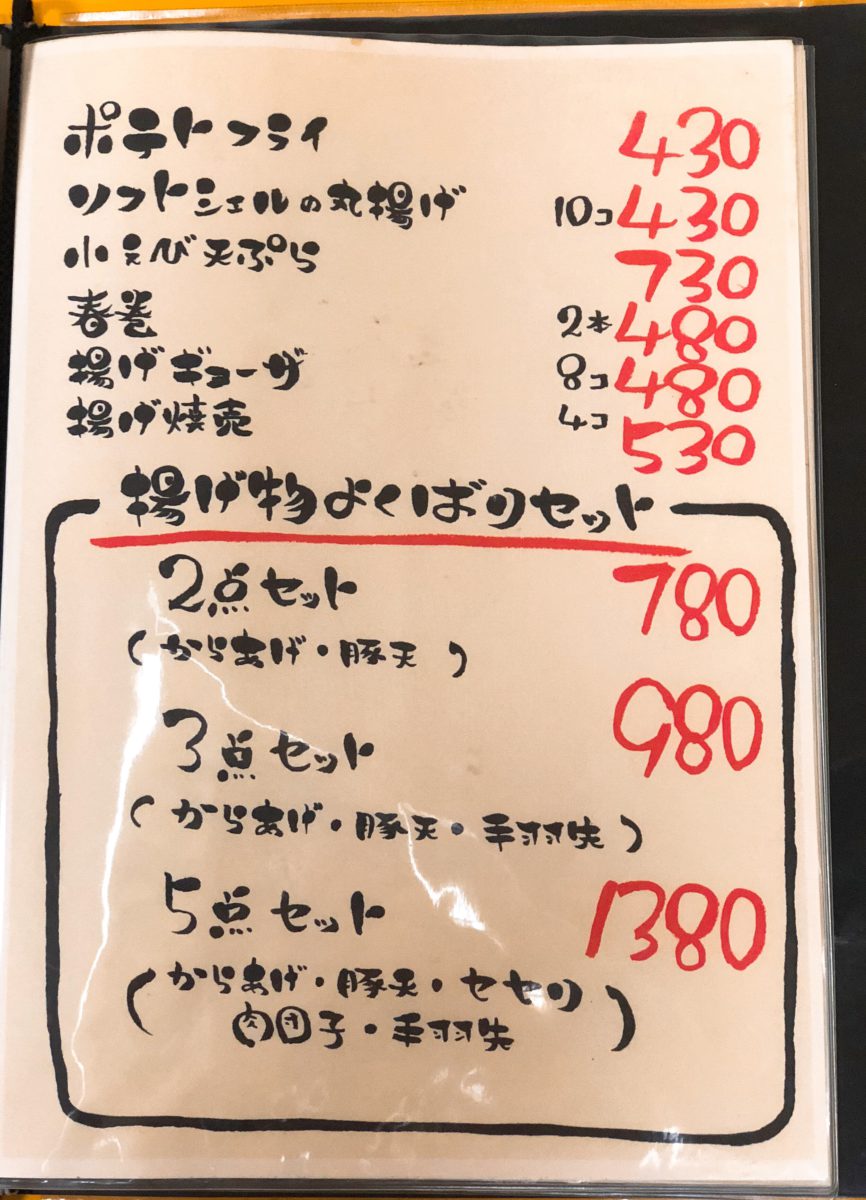 ポテトフライ 430
ソフトシェルの丸揚げ 10コ 430
小えび天ぷら 730
春巻 2本 480
揚げギョーザ 8コ 480
揚げ焼売 4コ 530
揚げ物よくばりセット
2点セット 780
(からあげ・豚天)
3点セット 980
(からあげ・豚天・手羽先)
5点セット 1380
(からあげ・豚天・セセリ
肉団子・手羽先)